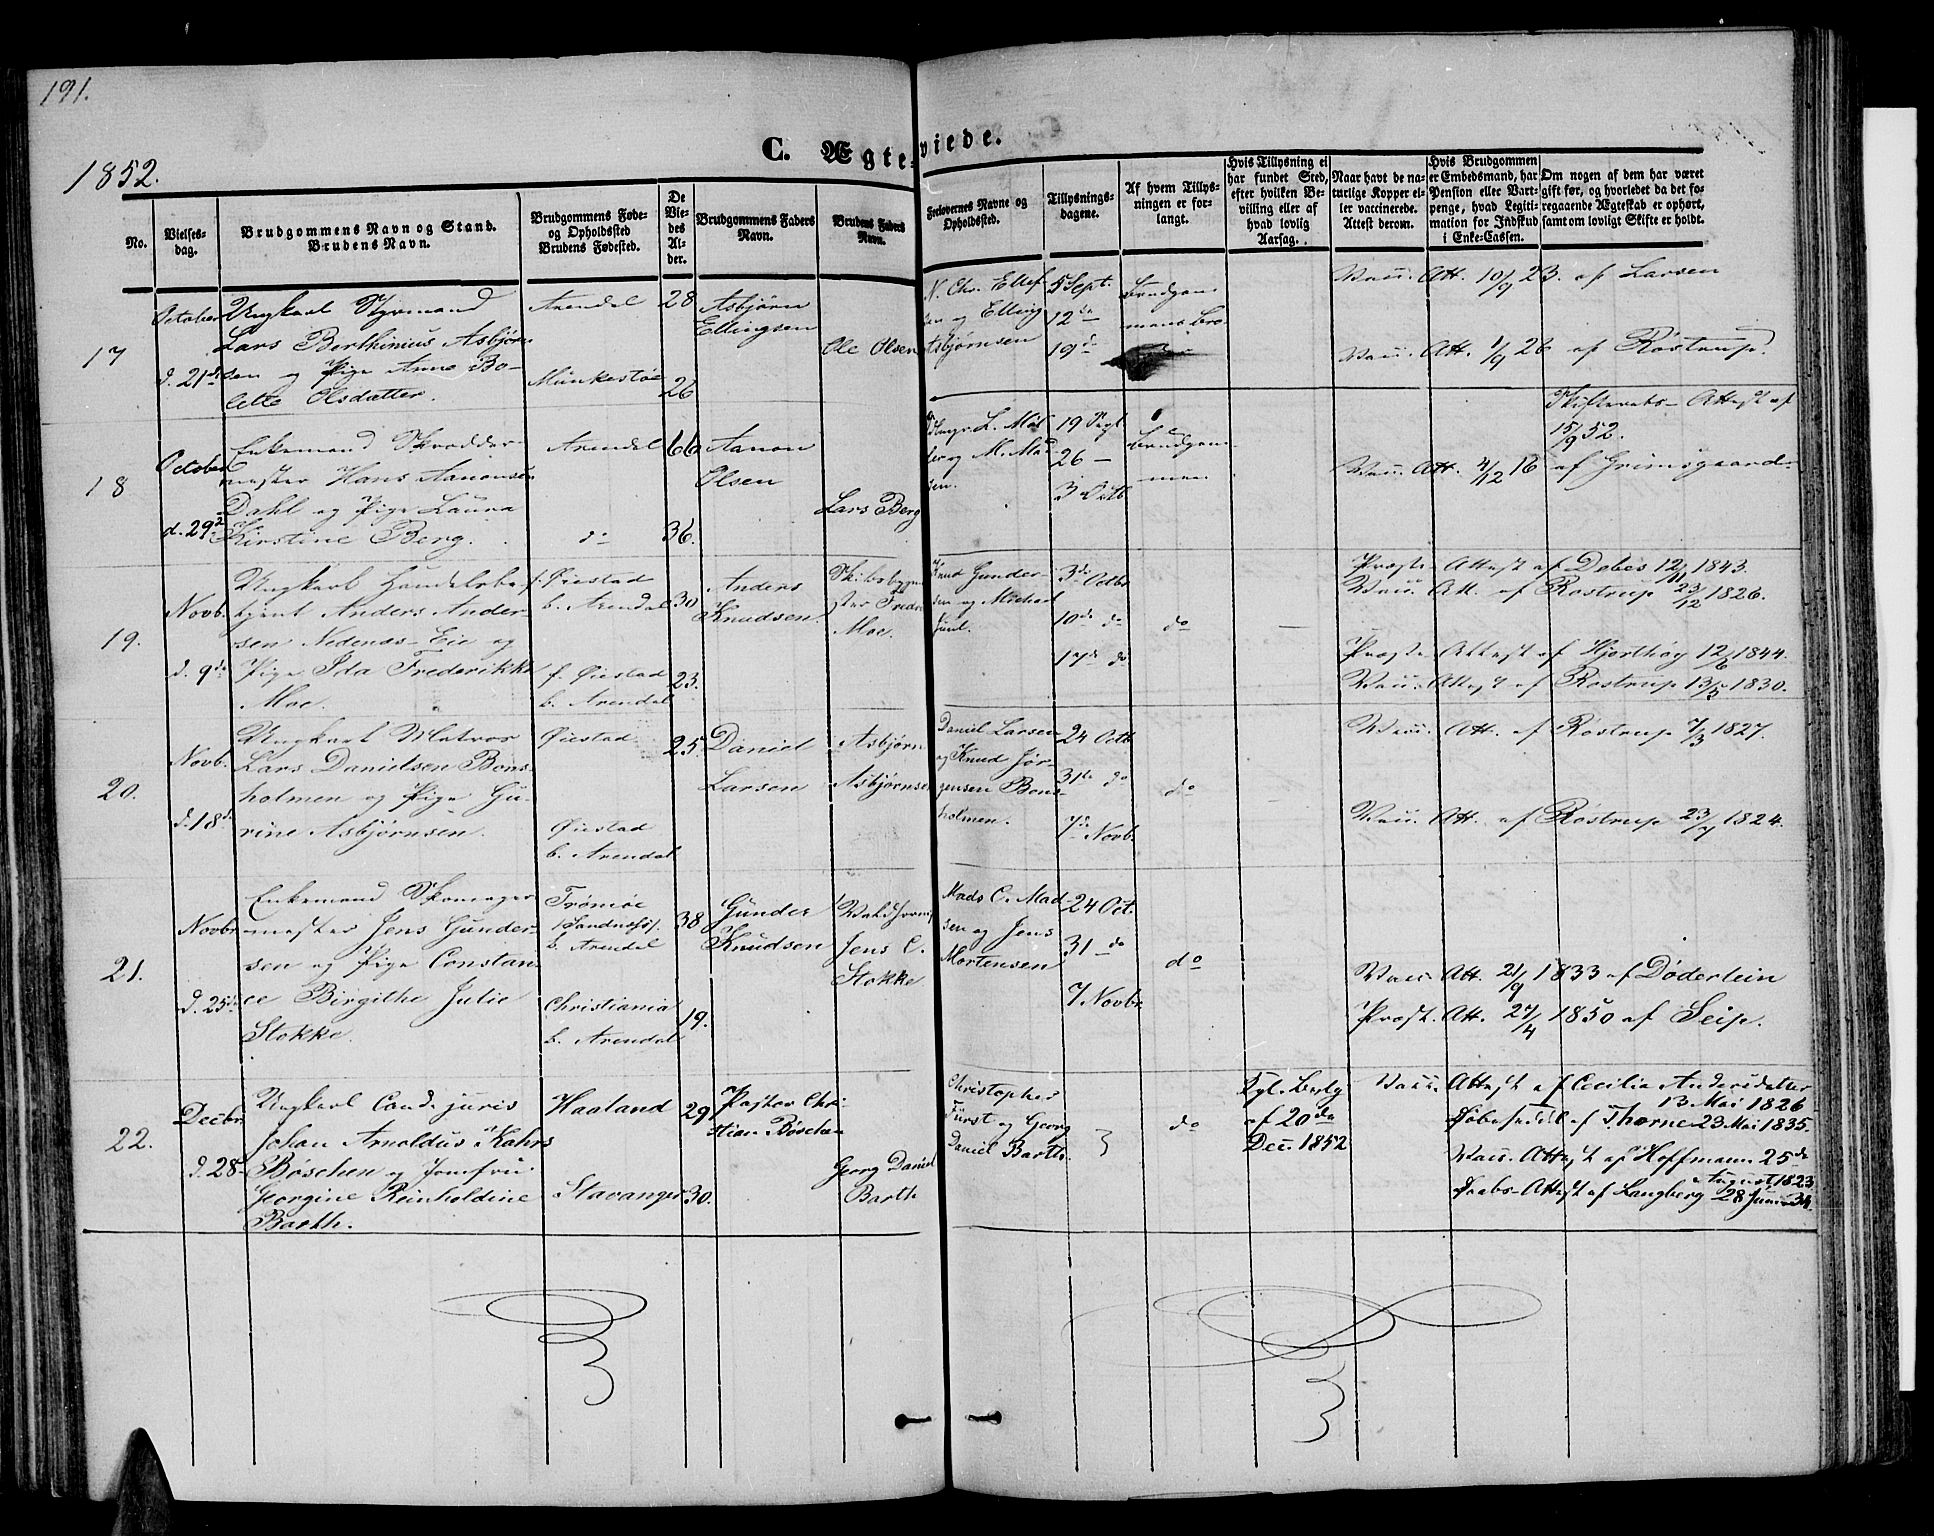 191.
C. Ægteviede.
1852.
No.
Vielses-
dag.
Brudgommens Navn og Stand.
Brudens Navn.
Brudgommens Føde-
og Opholdssted
Brudens Fødested.
De
Vie-
des
Al-
der.
Brudgommens Faders
Navn.
Brudens Faders
Navn.
Forlovernes Navne og
Opholdssted.
Tillysnings-
dagene.
Af hvem Tillys-
ningen er for-
langt.
Hvis Tillysning ei
har fundet Sted,
efter hvilken Be-
villing eller af
hvad lovlig
Aarsag.
Naar havt de na-
turlige Kopper el-
ler vaccinerede.
Attest derom.
Hvis Brudgommen
er Embedsmand, har
Pension eller Vart-
penge, hvad Legiti-
mation for Indskud
i Enke-Cassen.
Om nogen af dem har været
gift før, og hvorledet da det fo-
regaaende Ægteskab er ophørt,
samt om lovligt Skifte er holdt.
17
October
d. 21de
Ungkarl Styrmand
Lars Berthinius Asbjørn-
sen og Pige Anne Bo-
lette Olsdatter.
Arendal
Munkestøe
28
26
Asbjørn
Ellingsen
Ole Olsen
N. Chr. Ellef
sen og Elling
Asbjørnsen
5 Sept.
12 do
19 do
Brudgom-
mens Bro-
Vacc. Att. 10/9 23. af Larsen
Vacc. Att. 1/9 26 af Rostrup.
18
October
d. 29de
Enkemand Skrædder-
mester Hans Aanonsen
Dahl og Pige Laura
Kirstine Berg.
Arendal
do
66
36.
Aanon
Olsen
Lars Berg
L. Møl
ler og M. Mad
sen.
19 Sept
26 —
3 Octb
Brudgom-
men
Skifterets-Attest af
15/9 52.
Vacc. Att. 4/12 16 af Grimsgaard
19.
Novb.
d. 9de
Ungkarl Handelsbe-
tjent Anders Ander-
sen Nedenæs-Eie og
Pige Ida Frederikke
Moe.
f. Øiestad
b. Arendal
f. Øiestad
b. Arendal
30
23.
Anders
Knudsen
Skibsbygme
ster Fredr
Moe.
Knud Gunder-
sen og Michael
Juul.
3de Octbr
10de do
17de do
do
—
Præste-Attest af Dobes 12/11 1843.
Vacc. Att. af Rostrup 23/12 1826.
Præste Attest af Hjorthøy 12/6 1844.
Vacc. Attest af Rostrup 13/5 1830.
20.
Novb.
d. 18de
Ungkarl Matros
Lars Danielsen Bons-
holmen og Pige Gu-
rine Asbjørnsen.
Øiestad
Øiestad
b. Arendal
25.
Daniel
Larsen
Asbjørn
Asbjørnsen
Daniel Larsen
og Knud Jør-
gensen Bons-
holmen.
24 Octb
31te do
7de Novb.
do
Vacc. Att. af Rostrup 7/3 1827.
Vacc. Att. af Rostrup 23/7 1824.
21.
Novbr
d. 25de
Enkemand Skomager-
mester Jens Gunder-
sen og Pige Constan-
ce Birgithe Julie
Stokke.
Trømøe
b. Arendal
Christiania
b. Arendal
38
19.
Gunder
Knudsen
Jens C.
Stokke
Mads C. Mad-
sen og Jens
Mortensen
24 Oct.
31 do
7 Novbr
do
Vacc. Att. 21/9 1833 af Døderlein
Præst. Att. 27/4 1850 af Seip.
22.
Decbr
d. 28
Ungkarl Cand. juris
Johan Arnoldus Kahrs
Bøschen og Jomfru
Georgine Reinholdine
Barth.
Haaland
Stavanger
29
30.
Pastor Chri-
stian Bøschen
Georg Daniel
Barth
Christopher
Fürst og Georg
Daniel Barth.
do
Kgl. Bevlg
af 20de
Dec. 1852
Vacc. Attest af Cecilia Andersdatter
13 Mai 1826
Døbeseddel af Thorne 23 Mai 1835.
Vacc. Attest af Hoffmann 25de
August 1823
Daabs-Attest af Langberg 28 Juni 34.